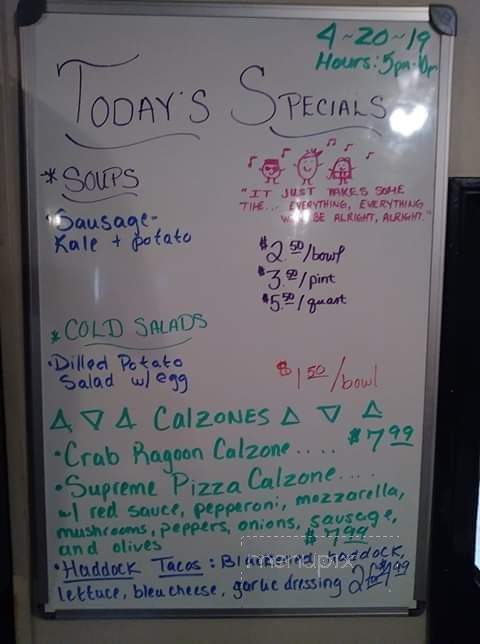 4~20~19
Hours: 5pm-10pm
TODAY'S SPECIALS
*SOUPS
"IT JUST TAKES SOME
TIME... EVERYTHING, EVERYTHING
WILL BE ALRIGHT, ALRIGHT."
• Sausage-
Kale + potato
$2.50/bowl
$3.50/pint
$5.50/quart
*COLD SALADS
• Dilled Potato
Salad w/ egg
$1.50/bowl
CALZONES
• Crab Ragoon Calzone.... $7.99
• Supreme Pizza Calzone....
w/ red sauce, pepperoni, mozzarella,
mushrooms, peppers, onions, sausage,
and olives $7.99
• Haddock Tacos: Blackened haddock,
lettuce, bleu cheese, garlic dressing 2 for 4.99
menupix